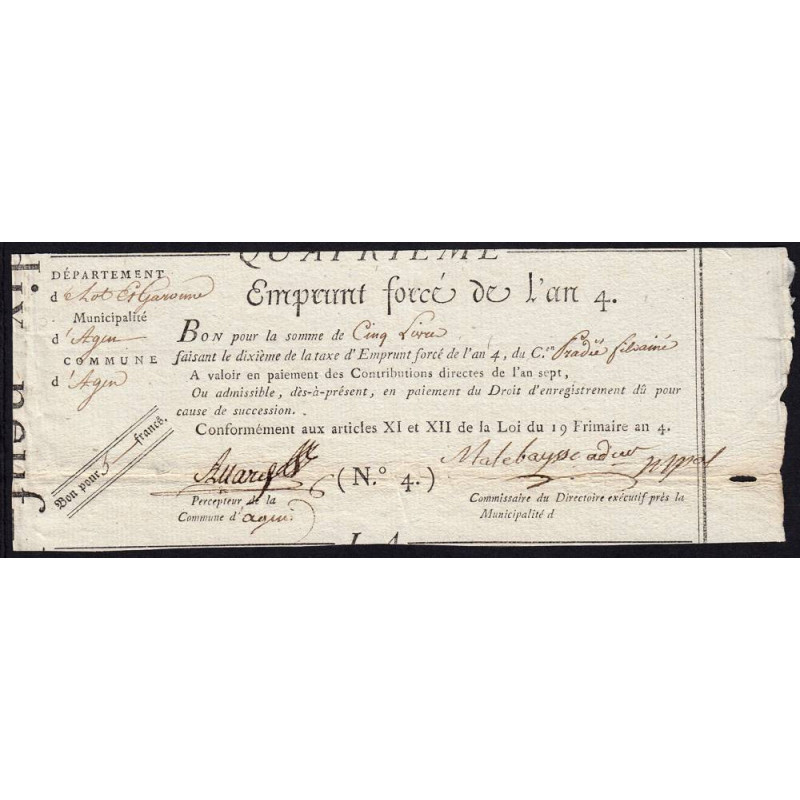 QUATRIEME
DÉPARTEMENT
d Lot Et Garonne
Municipalité
d'Agen
COMMUNE
d'Agen
Bon pour 5 francs.
Emprunt forcé de l'an 4.
BON pour la somme de Cinq Livre
faisant le dixième de la taxe d'Emprunt forcé de l'an 4, du C.en Pradié fils ainé
A valoir en paiement des Contributions directes de l'an sept,
Ou admissible, dès-à-présent, en paiement du Droit d'enregistrement dû pour
cause de succession.
Conformément aux articles XI et XII de la Loi du 19 Frimaire an 4.
(N.º 4.)
Malebaysse
Percepteur de la
Commune d'agen
Commissaire du Directoire exécutif près la
Municipalité d
LA